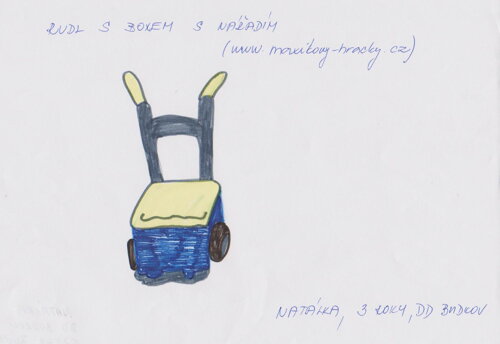 RUDL S BOXEM S NÁŘADÍM
(www.maxikovy-hracky.cz)
NATÁLKA, 3 ROKY, DD BUDKOV